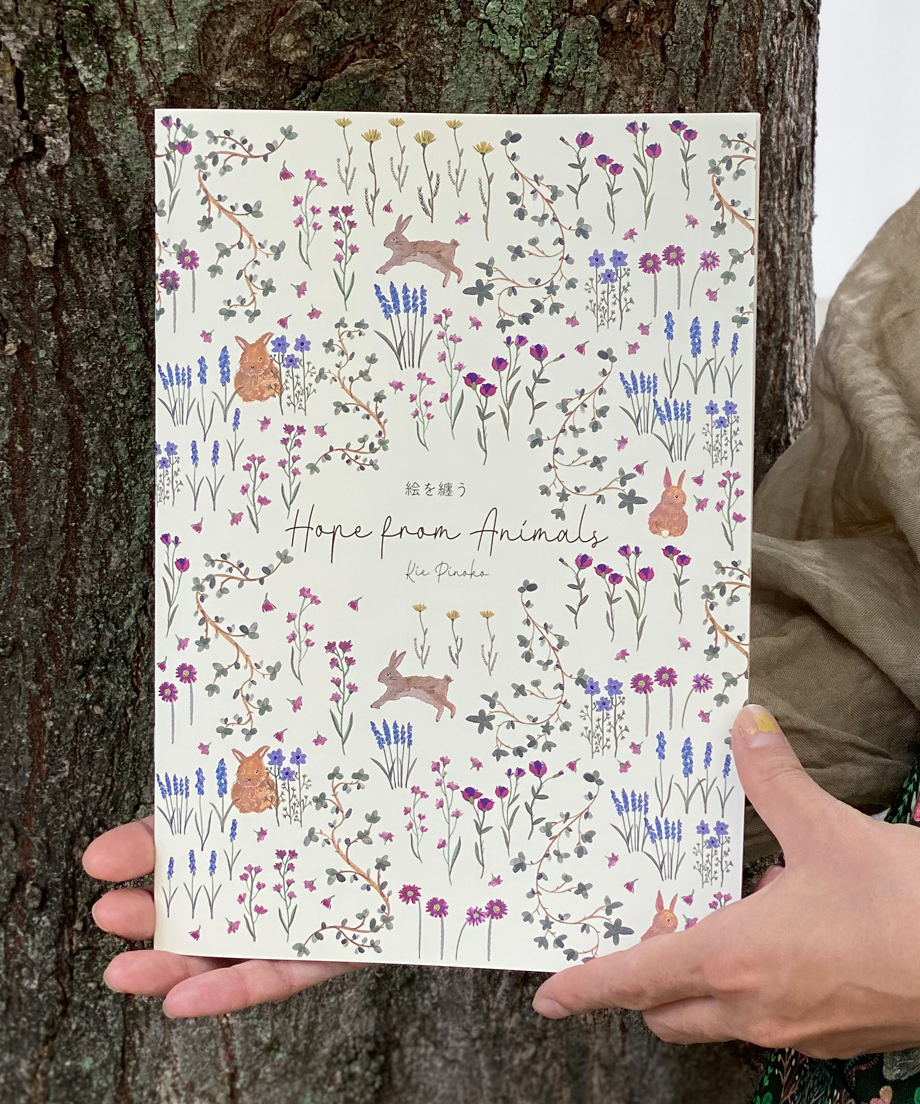 絵を纏う
Hope from Animals
Kie Pinoko